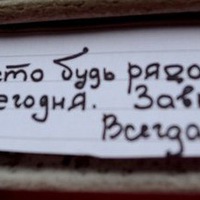 сто будь рядо
егодня. Завт
Всегда